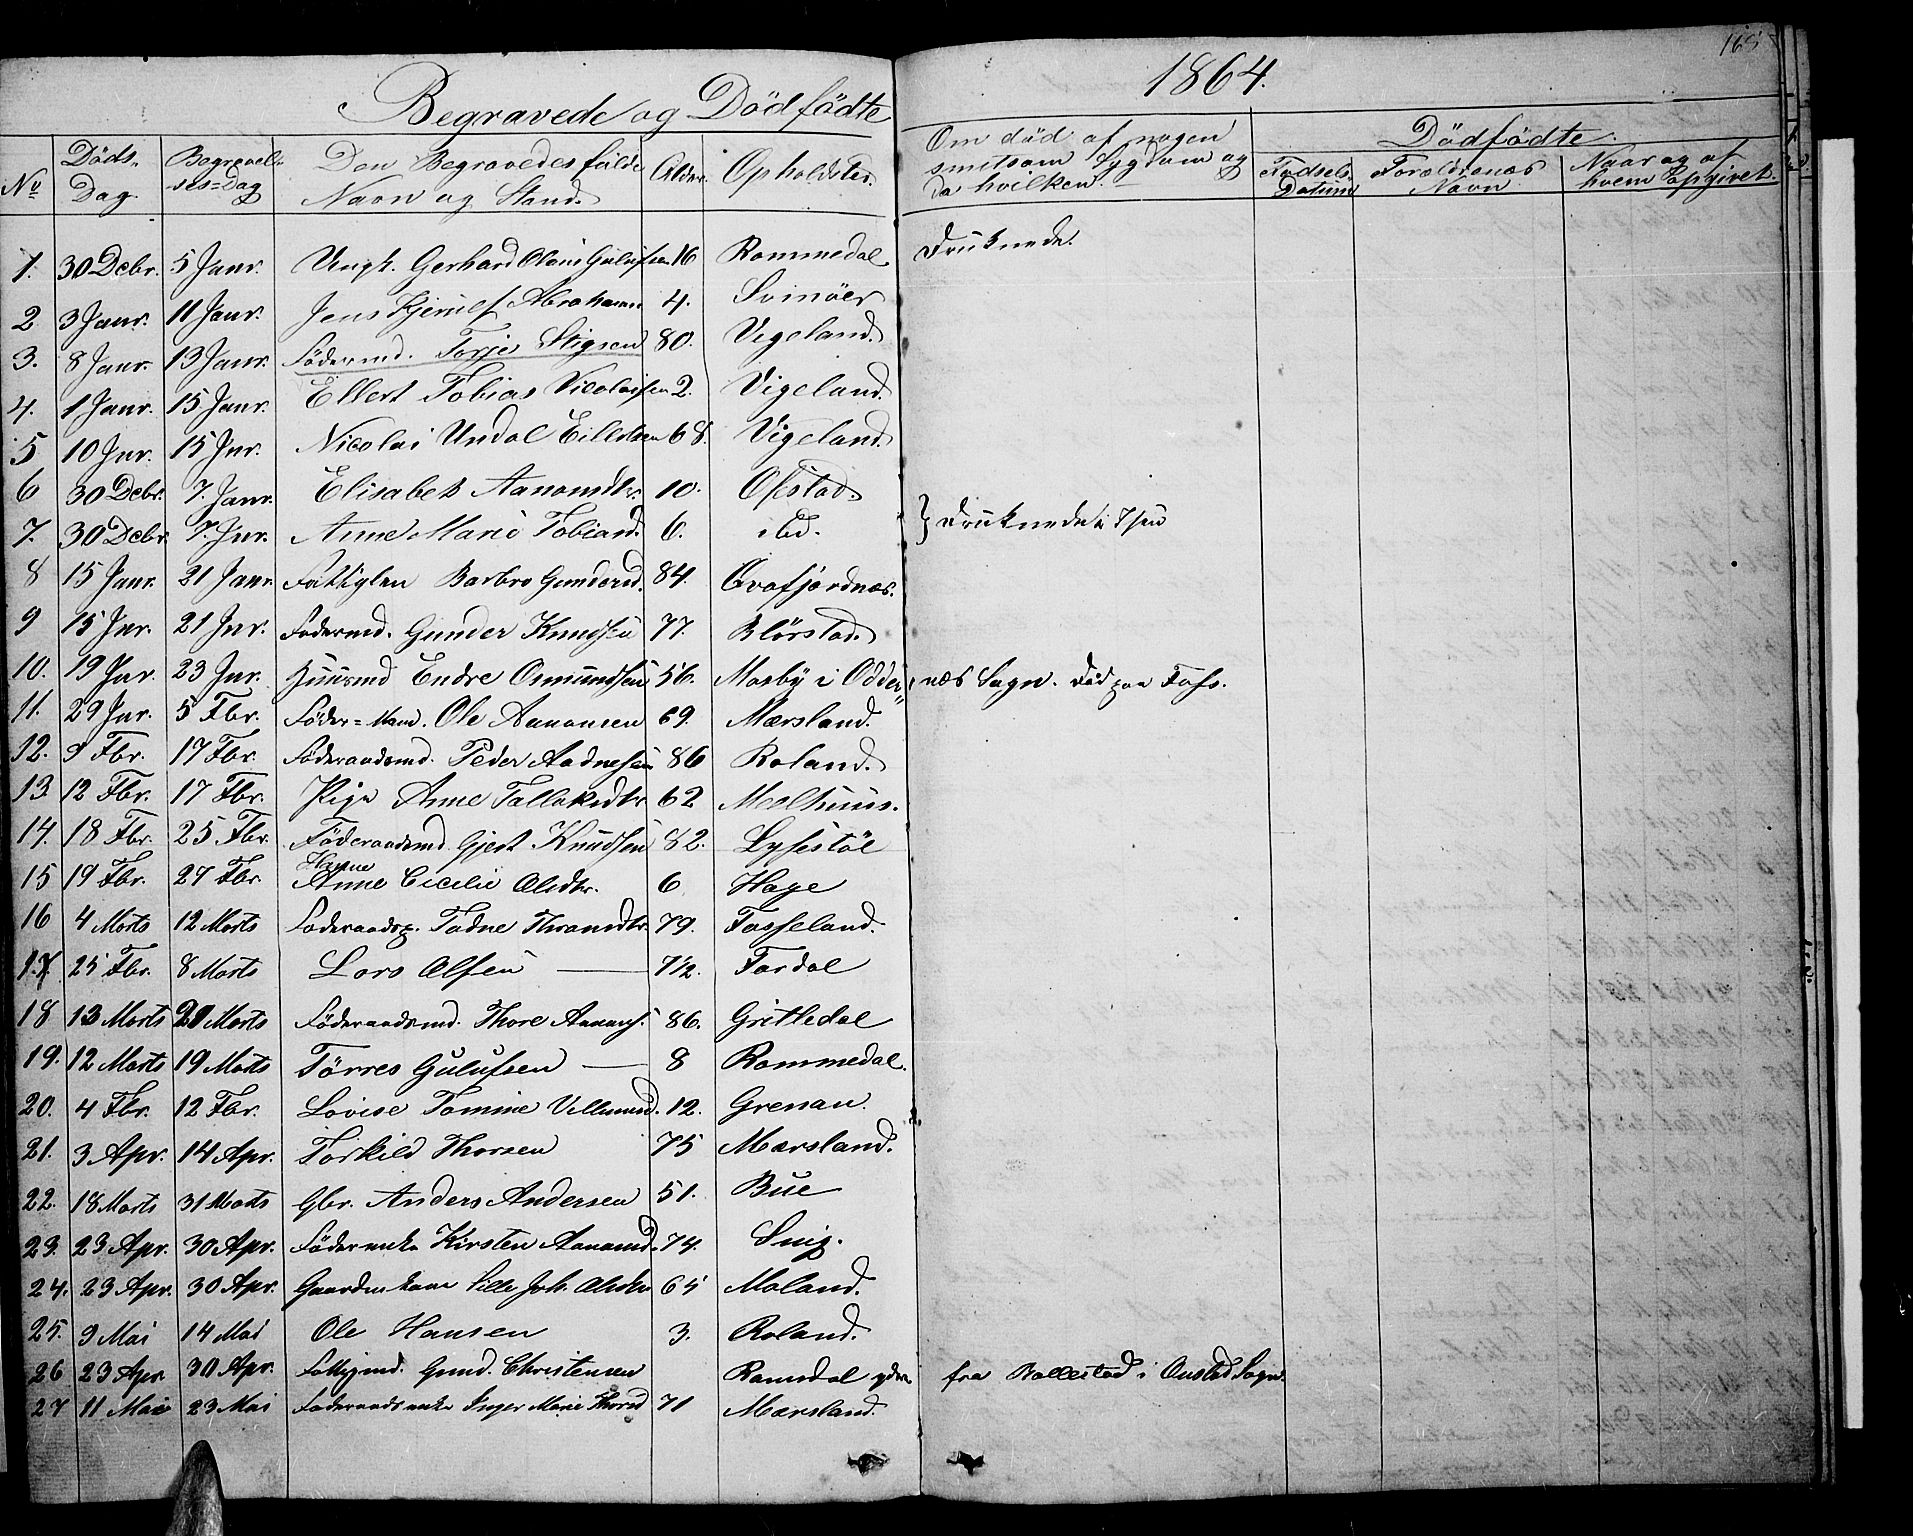 165
1864.
Begravede og Dødfødte
No Døds-Dag. Begravel-ses=Dag Den Begravedes fulde Navn og Stand. Alder. Opholdsted. Om død af nogen smitsom Sygdom og da hvilken. Dødfødte. Fødsels-Datum Forældrenes Navn Naar og af hvem opgivet.
1. 30 Debr. 5 Janr. Ungk. Gerhard Olaus Gulufsen 16 Rommedal Druknede.
2 3 Janr. 11 Janr. Jens Kjerulf Abrahams 4. Svinöer
3. 8 Janr. 13 Janr. Födermd. Torje Stigsen 80. Vigeland.
4. 1 Janr. 15 Janr. Ellert Tobias Nicolaisen 2. Vigeland.
5 10 Jnr. 15 Jnr. Nicolai Undal Eilertsen 68. Vigeland.
6 30 Debr. 7. Janr. Elisabet Aanonsdtr. 10. Ofstad.
7. 30 Debr. 7. Jnr. Anne Marie Tobiasd. 6. ibd. } Druknede i Isen
8 15 Janr. 21 Janr. Fattiglem Barbro Gundersd. 84. Qvafjordnes.
9 15 Jnr. 21 Jnr. Födermd. Gunder Knudsen 77. Blörstad.
10. 19 Jnr. 23 Jnr. Huusmd Endre Osmundsen 56. Mosby i Odder-næs Sogn. Död paa Foss.
11. 29 Jnr. 5 Fbr. Föder=Mand. Ole Aanonsen 69. Mærsland.
12. 9 Fbr. 17 Fbr. Föderaadsmd. Peder Aadnesen 86 Roland.
13 12 Fbr. 17 Fbr. Pige Anne Tallaksdtr 62 Moelhuus.
14. 18 Fbr. 25 Fbr. Föderaadsmd. Gjert Knudsen 82. Lyséstöl
15 19 Fbr. 27 Fbr. Hanne Anne Cecilie Olsdtr. 6 Hage
16 4 Marts 12 Marts Föderaadsp. Tadne Thromdtr. 79. Fasseland.
17. 25 Fbr. 8 Marts Lars Olsen 7 1/2. Fardal
18 13 Marts 20 Marts Föderaadsmd. Thore Aanons. 86. Gritledal
19. 12 Marts 19 Marts Törres Gulufsen 8 Rommedal.
20. 4 Fbr. 12 Fbr. Lovise Tomine Villumsd. 12. Grenan.
21. 3 Apr. 14 Apr. Torkild Thorsen 75 Mærsland.
22. 18 Marts 31 Marts Gbr. Anders Andersen 51. Bue
23. 23 Apr. 30 Apr. Föderenke Kirsten Aanonsd. 74. Snig.
24. 23 Apr. 30 Apr. Gaardmkone Sille Joh. Olsdtr 65 Moland.
25. 9 Mai 14 Mai Ole Hansen 3. Roland.
26 23 Apr. 30 Apr. Fattigmd. Gund. Christensen Ramsdal ydre fra Rollestad i Oustad Sogn.
27 11 Mai 23 Mai Föderaadsenke Inger Marie Thorsd 71 Mærsland.